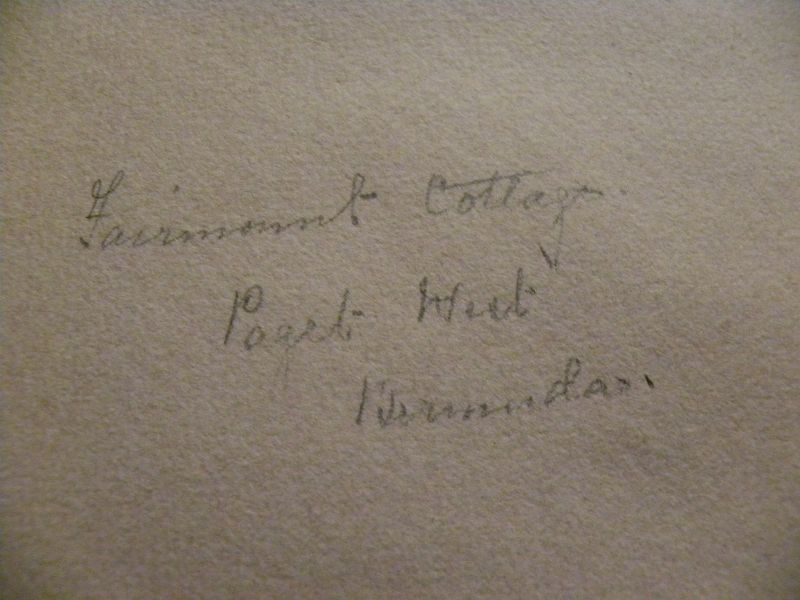 Fairmount Cottage.
Paget West
Bermuda.